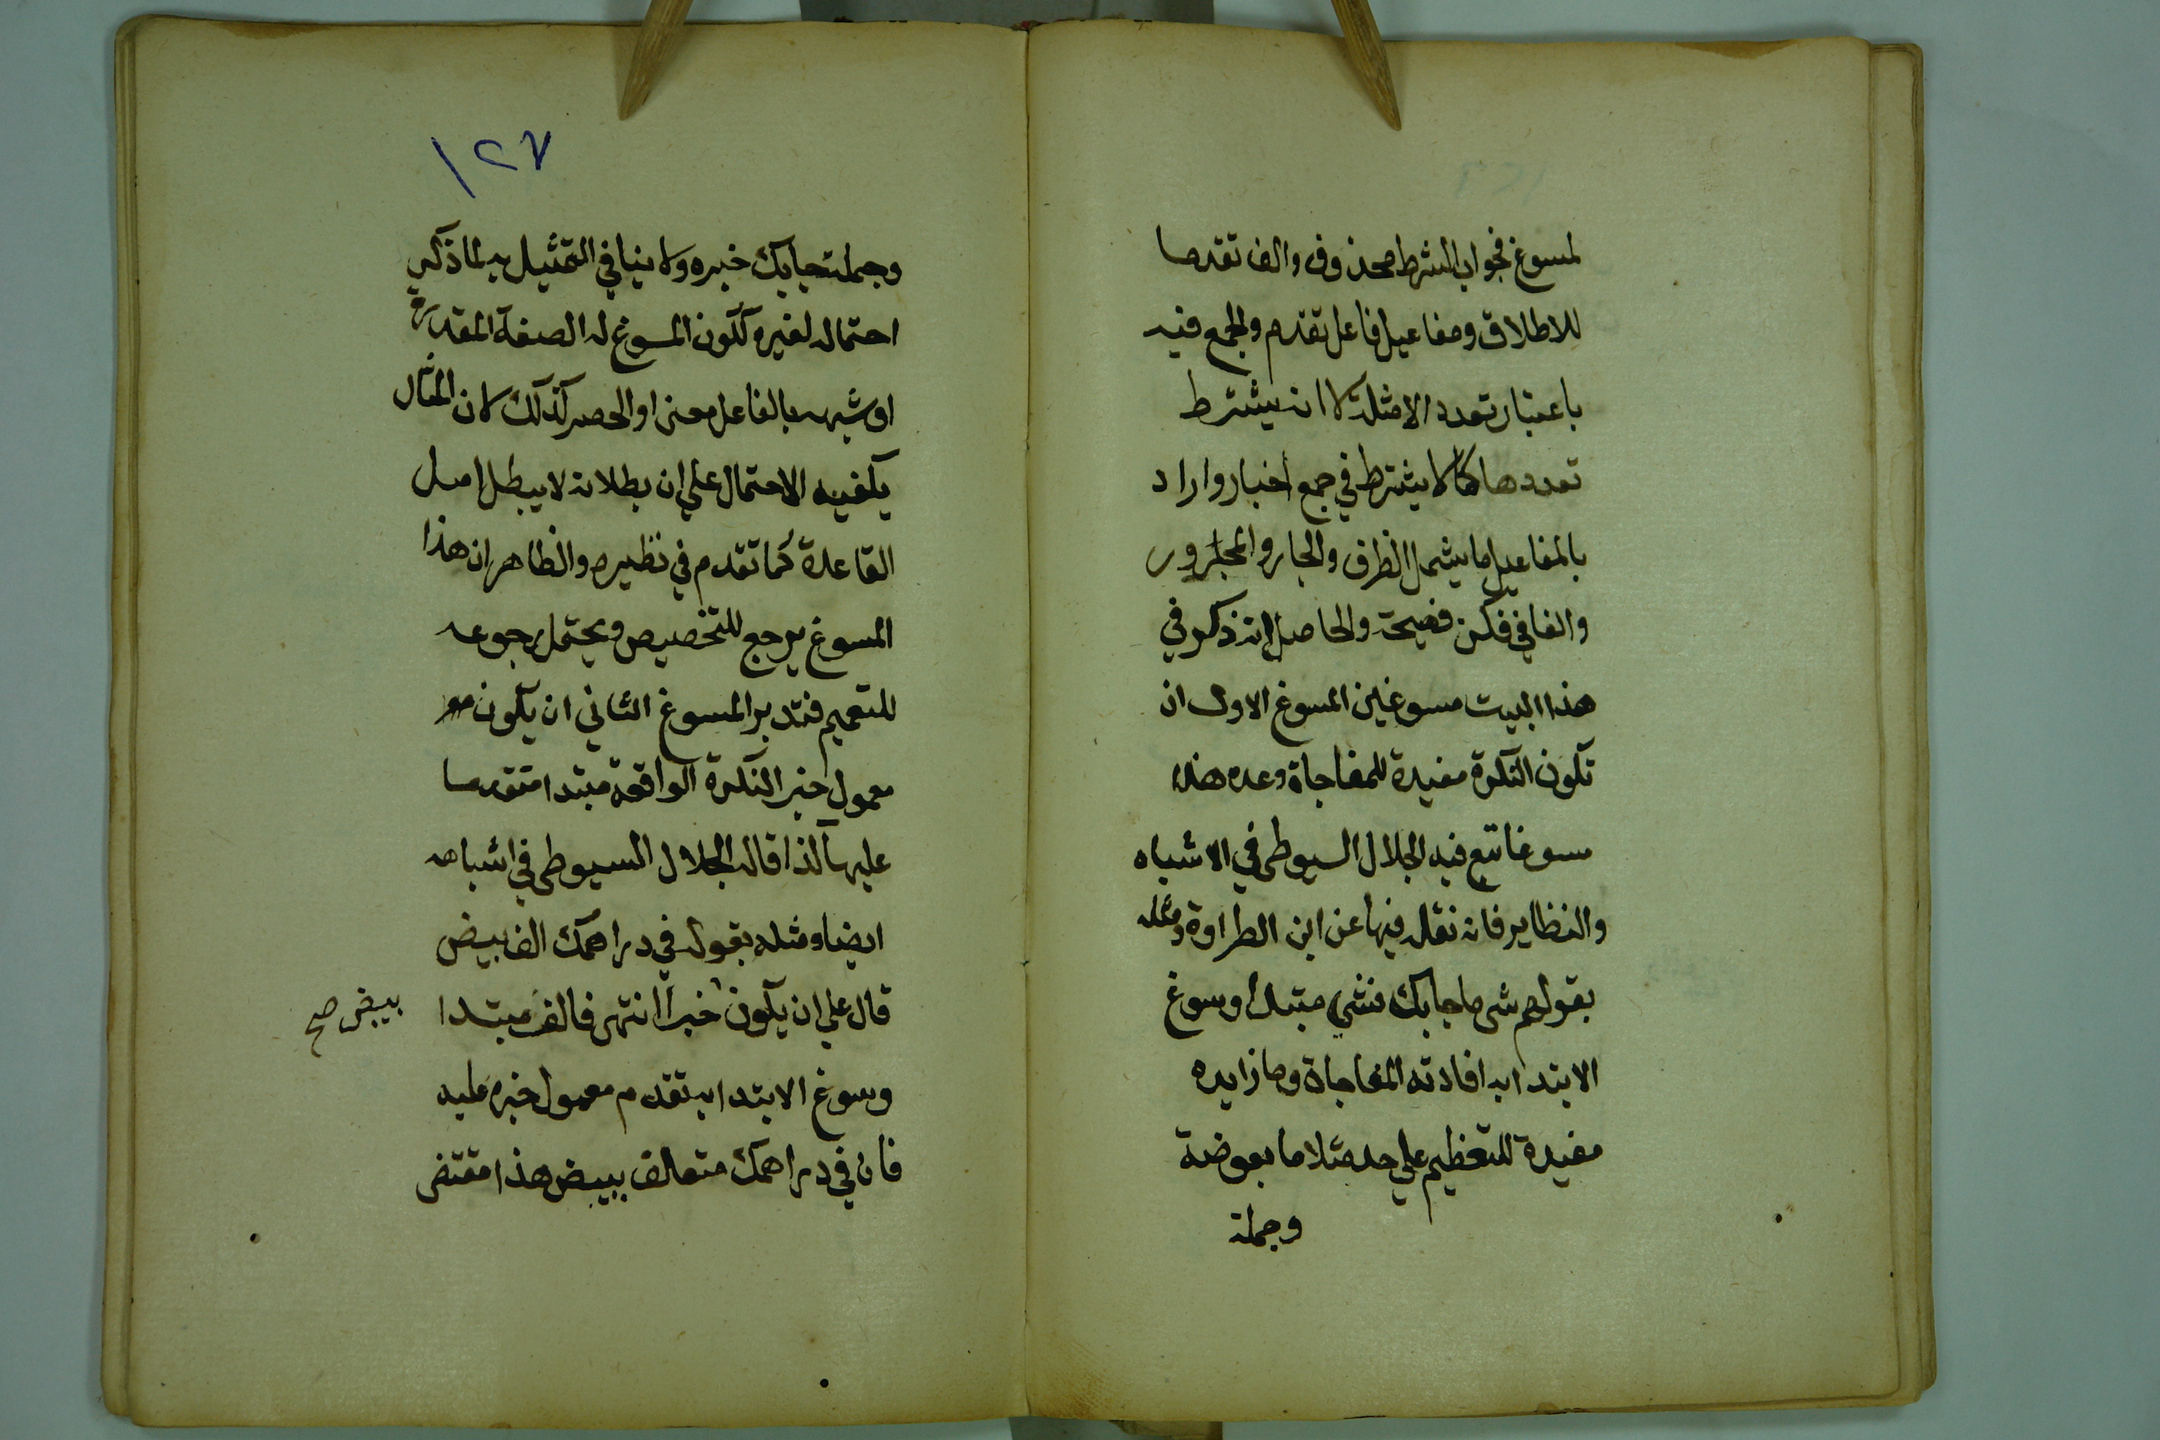 لمسوغ فجواب الشرط محذوف والف تقدما
للاطلاق ومفاعيل فاعل تقدم والجمع فيه
باعتبار تعدد الامثلة لا انه يشترط
تعددها كما لا يشترط في جمع اخبار واراد
بالمفاعيل ما يشمل الظرف والجار والمجرور
والفا في فكن فصيحة والحاصل انه ذكر في
هذا البيت مسوغين المسوغ الاول ان
تكون النكرة مفيدة للمفاجاة وعده هذا
مسوغا تبع فيه الجلال السيوطي في الاشباه
والنظاير فانه نقله فيها عن ابن الطراوة ومثله
بقولهم شي ما جابك فشي مبتدا وسوغ
الابتدا به افادته المفاجاة وما زايده
مفيدة للتعظيم علي حد مثلا ما بعوضة
وجملة
١٢٧
وجملة جابك خبره ولا ينافي التمثيل به لما ذكر
احتماله لغيره ككون المسوغ له الصفة المقدرة
او شبهه بالفاعل معنى او الحصر كذلك لان المثال
يكفيه الاحتمال علي ان بطلانه لا يبطل اصل
القاعدة كما تقدم في نظيره والظاهر ان هذا
المسوغ يرجع للتخصيص ويحتمل رجوعه
للتعميم فتدبر المسوغ الثاني ان يكون
معمول خبر النكرة الواقعة مبتدا متقدما
عليها كذا قاله الجلال السيوطي في اشباهه
ايضا ومثله بقوله في دراهمك الف بيض
قال علي ان يكون خبرا انتهى فالف مبتدا
بيض صح
وسوغ الابتدا به تقدم معمول خبره عليه
فان في دراهمك متعلق ببيض هذا مقتضى